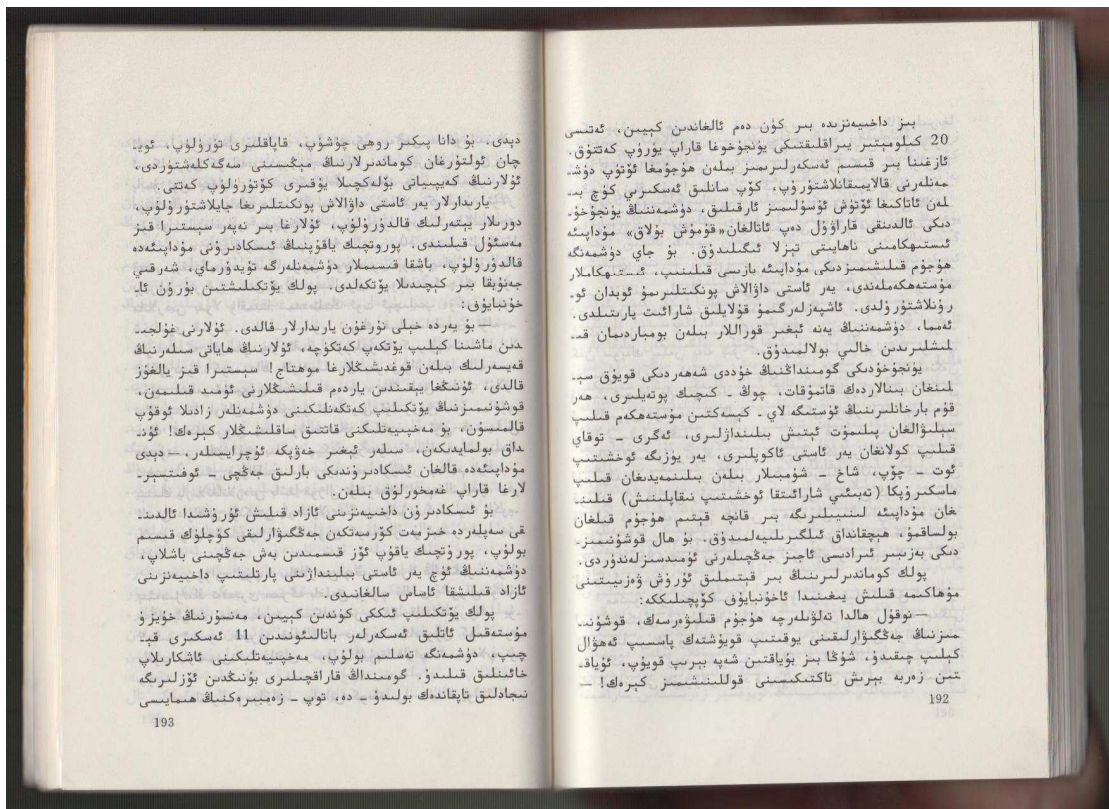 بىز داخىيەنزىدە بىر كۈن دەم ئالغاندىن كېيىن، ئەتىسى
20 كىلومېتىر يىراقلىقتىكى يۇنجۇخوغا قاراپ يۈرۈپ كەتتۇق.
ئازغىنا بىر قىسىم ئەسكەرلىرىمىز بىلەن ھۇجۇمغا ئۆتۈپ دۈش‍ـ
مەنلەرنى قالايمىقانلاشتۇرۇپ، كۆپ سانلىق ئەسكىرىي كۈچ بى‍ـ
لەن ئاتاكىغا ئۆتۈش ئۇسۇلىمىز ئارقىلىق، دۈشمەننىڭ يۇنجۇخو‍ـ
دىكى ئالدىنقى قاراۋۇل دەپ ئاتالغان «قۇمۇش بۇلاق» مۇداپىئە
ئىستىھكامىنى ناھايىتى تېزلا ئىگىلىدۇق. بۇ جاي دۈشمەنگە
ھۇجۇم قىلىشىمىزدىكى مۇداپىئە بازىسى قىلىنىپ، ئىستىھكاملار
مۇستەھكەملەندى، يەر ئاستى داۋالاش پونكىتلىرىمۇ ئوبدان ئو‍ـ
رۇنلاشتۇرۇلدى. ئاشپەزلەرگىمۇ قۇلايلىق شارائىت يارىتىلدى.
ئەمما، دۈشمەننىڭ يەنە ئېغىر قوراللار بىلەن بومباردىمان قى‍ـ
لىشلىرىدىن خالىي بولالمىدۇق.
يۇنجۇخودىكى گومىنداڭنىڭ خۇددى شەھەردىكى قويۇق سې‍ـ
لىنغان بىنالاردەك قاتمۇقات، چوڭ ـ كىچىك پوتەيلىرى، ھەر
قۇم بارخانلىرىنىڭ ئۈستىگە لاي ـ كېسەكتىن مۇستەھكەم قىلىپ
سېلىۋالغان پىلىمۇت ئېتىش بىلىنداژلىرى، ئەگرى ـ توقاي
قىلىپ كولانغان يەر ئاستى ئاكوپلىرى، يەر يۈزىگە ئوخشىتىپ
ئوت ـ چۆپ، شاخ ـ شۈمبىلار بىلەن بىلىنمەيدىغان قىلىپ
ماسكىروپكا (تەبىئىي شارائىتقا ئوخشىتىپ نىقاپلىنىش) قىلىن‍ـ
غان مۇداپىئە لىنىيىلىرىگە بىر قانچە قېتىم ھۇجۇم قىلغان
بولساقمۇ، ھېچقانداق ئىلگىرىلىيەلمىدۇق. بۇ ھال قوشۇنىمىز‍ـ
دىكى بەزىبىر ئىرادىسى ئاجىز جەڭچىلەرنى ئۈمىدسىزلەندۈردى.
پولك كوماندىرلىرىنىڭ بىر قېتىملىق ئۇرۇش ۋەزىيىتىنى
مۇھاكىمە قىلىش يىغىنىدا ئاخۇنبايۇف كۆپچىلىككە:
— نوقۇل ھالدا تەلۋىلەرچە ھۇجۇم قىلىۋەرسەك، قوشۇنى‍ـ
مىزنىڭ جەڭگىۋارلىقىنى يوقىتىپ قويۇشتەك پاسسىپ ئەھۋال
كېلىپ چىقىدۇ، شۇڭا بىز بۇياقتىن شەپە بېرىپ قويۇپ، ئۇياق‍ـ
تىن زەربە بېرىش تاكتىكىسىنى قوللىنىشىمىز كېرەك! —
192
دېدى. بۇ دانا پىكىر روھى چۈشۈپ، قاپاقلىرى تۈرۈلۈپ، ئوي‍ـ
چان ئولتۇرغان كوماندىرلارنىڭ مېڭىسىنى سەگەكلەشتۈردى،
ئۇلارنىڭ كەيپىياتى بۆلەكچىلا يۇقىرى كۆتۈرۈلۈپ كەتتى.
يارىدارلار يەر ئاستى داۋالاش پونكىتلىرىغا جايلاشتۇرۇلۇپ،
دورىلار يېتەرلىك قالدۇرۇلۇپ، ئۇلارغا بىر نەپەر سېستىرا قىز
مەسئۇل قىلىندى. پوروتچىك ياقۇپنىڭ ئىسكادرونى مۇداپىئەدە
قالدۇرۇلۇپ، باشقا قىسىملار دۈشمەنلەرگە تۇيدۇرماي، شەرقىي
جەنۇبقا بىر كېچىدىلا يۆتكەلدى. پولك يۆتكىلىشتىن بۇرۇن ئا‍ـ
خۇنبايۇف:
— بۇ يەردە خېلى نۇرغۇن يارىدارلار قالدى. ئۇلارنى غۇلجى‍ـ
دىن ماشىنا كېلىپ يۆتكەپ كەتكۈچە، ئۇلارنىڭ ھاياتى سىلەرنىڭ
قەيسەرلىك بىلەن قوغدىشىڭلارغا موھتاج! سېستىرا قىز يالغۇز
قالدى، ئۇنىڭغا يېقىندىن ياردەم قىلىشىڭلارنى ئۈمىد قىلىمەن،
قوشۇنىمىزنىڭ يۆتكىلىپ كەتكەنلىكىنى دۈشمەنلەر زادىلا ئوقۇپ
قالمىسۇن، بۇ مەخپىيەتلىكنى قاتتىق ساقلىشىڭلار كېرەك! ئۇن‍ـ
داق بولمايدىكەن، سىلەر ئېغىر خەۋپكە ئۇچرايسىلەر، — دېدى
مۇداپىئەدە قالغان ئىسكادروندىكى بارلىق جەڭچى ـ ئوفىتسېر‍ـ
لارغا قاراپ غەمخورلۇق بىلەن.
بۇ ئىسكادرون داخىيەنزىنى ئازاد قىلىش ئۇرۇشىدا ئالدىن‍ـ
قى سەپلەردە خىزمەت كۆرسەتكەن جەڭگىۋارلىقى كۈچلۈك قىسىم
بولۇپ، پوروتچىك ياقۇپ ئۆز قىسمىدىن بەش جەڭچىنى باشلاپ،
دۈشمەننىڭ ئۈچ يەر ئاستى بىلىنداژىنى پارتلىتىپ داخىيەنزىنى
ئازاد قىلىشقا ئاساس سالغانىدى.
پولك يۆتكىلىپ ئىككى كۈندىن كېيىن، مەنسۇرنىڭ خۇيزۇ
مۇستەقىل ئاتلىق ئەسكەرلەر باتالىئونىدىن 11 ئەسكىرى قې‍ـ
چىپ، دۈشمەنگە تەسلىم بولۇپ، مەخپىيەتلىكىنى ئاشكارىلاپ
خائىنلىق قىلىدۇ. گومىنداڭ قاراقچىلىرى بۇنىڭدىن ئۆزلىرىگە
نىجادلىق تاپقاندەك بولىدۇ ـ دە، توپ ـ زەمبىرەكنىڭ ھىمايىسى
193